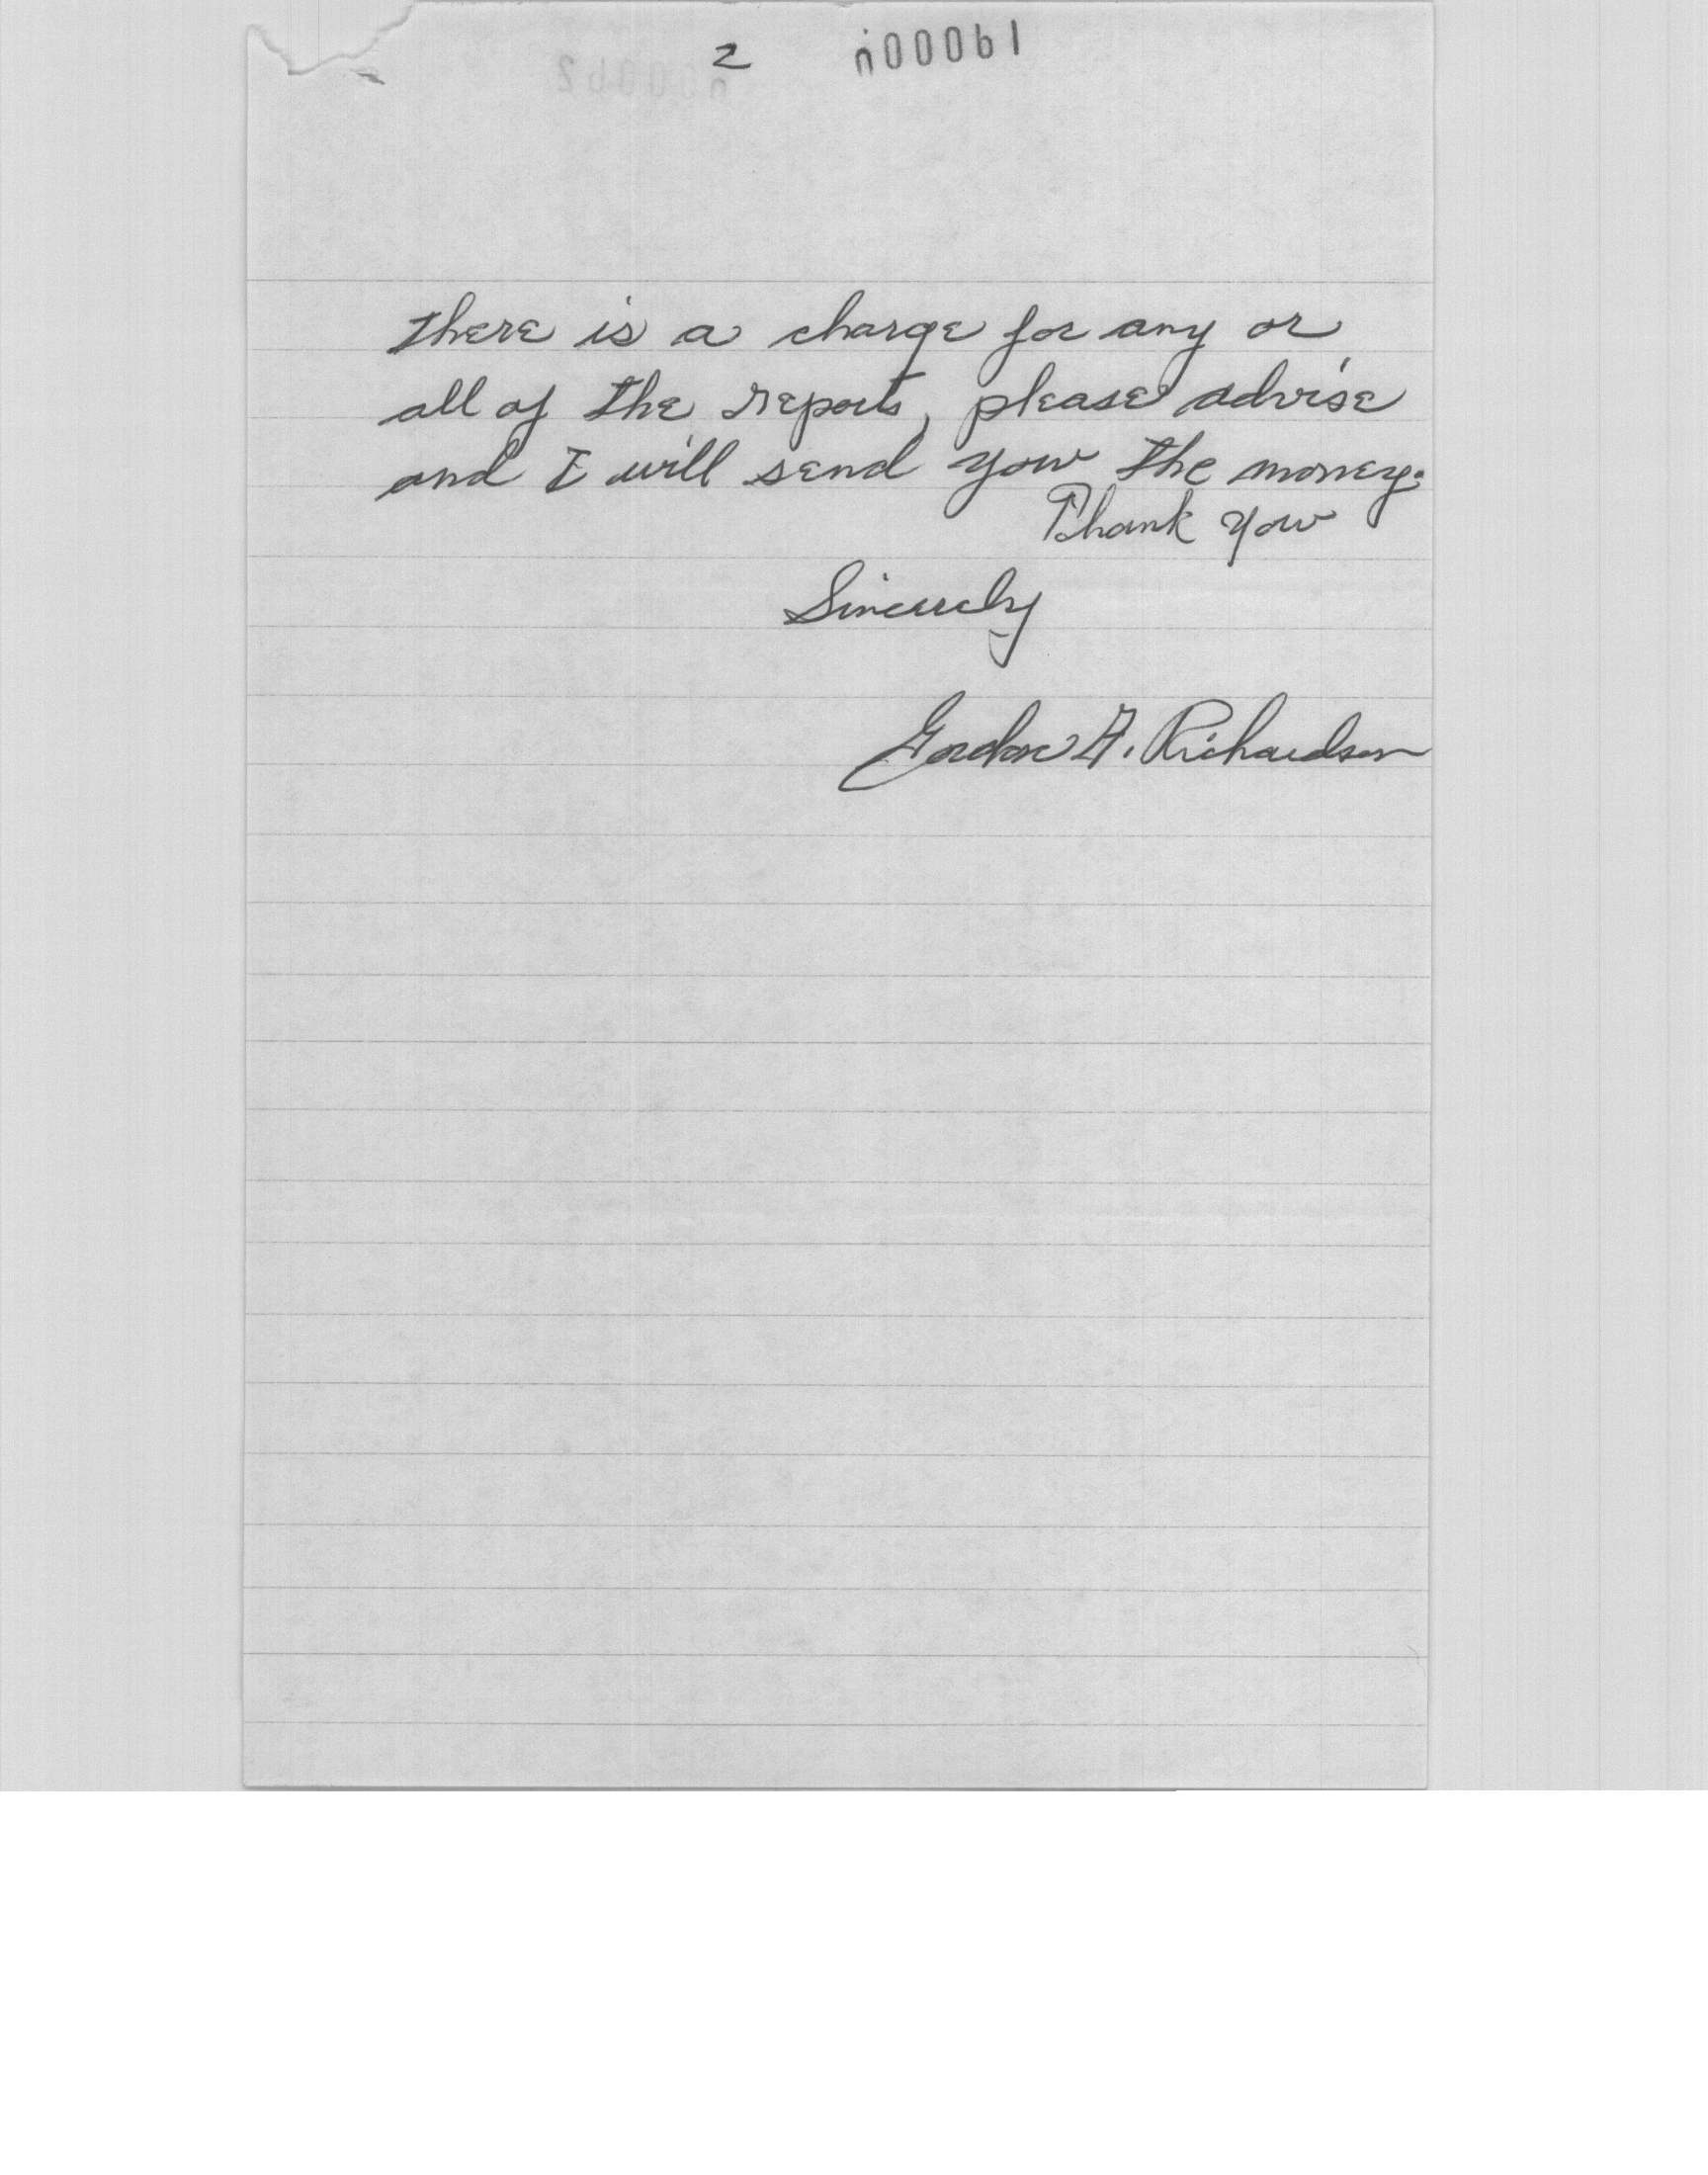 2 n00061
there is a charge for any or
all of the reports, please advise
and I will send you the money.
Thank you
Sincerely
Gordon F. Richardson